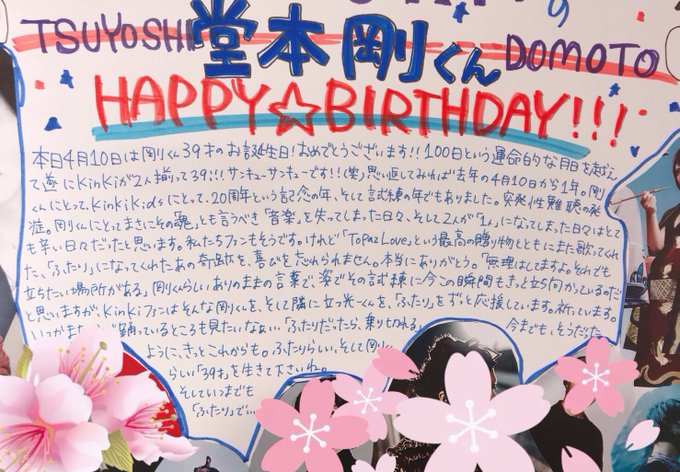 の
TSUYOSHI 堂本剛くん DOMOTO
HAPPY☆BIRTHDAY!!!
本日4月10日は剛くん39才のお誕生日!おめでとうございます!!100日という運命的な月日を越え
て遂にKinKiが2人揃って39!!!サッキューサッキューです!!(笑)思い返してみれば去年の4月10日から1年。剛
くんにとって、KinKi Kidsにとって、20周年という記念の年、そして試練の年でもありました。突発性難聴の発
症。剛くんにとってまさにその「魂」とも言うべき「音楽」を失ってしまった日々、そして2人が「1人」になってしまった日々はとて
も辛い日々だったと思います。私たちファンもそうです。けれど「Topaz Love」という最高の贈り物とともにまた歌ってくれ
た、「ふたり」になってくれたあの奇跡を、喜びを忘れられません。本当にありがとう。「無理はしてますよ。それでも
立ちたい場所がある」剛くんらしいありのままの言葉で、姿でその試練に今この瞬間もきっと立ち向かっているのだ
と思いますが、KinKiファンはそんな剛くんを、そして隣に立つ光一くんを、「ふたり」をずっと応援しています。祈っています。
いつかまた 踊っているところも見たいなぁ…「ふたりだったら、乗り切れる」 今までも、そうだった
ように、きっとこれからも。ふたりらしい、そして剛
らしい「39才」を生きて下さいね。
そしていつまでも
「ふたり」で…